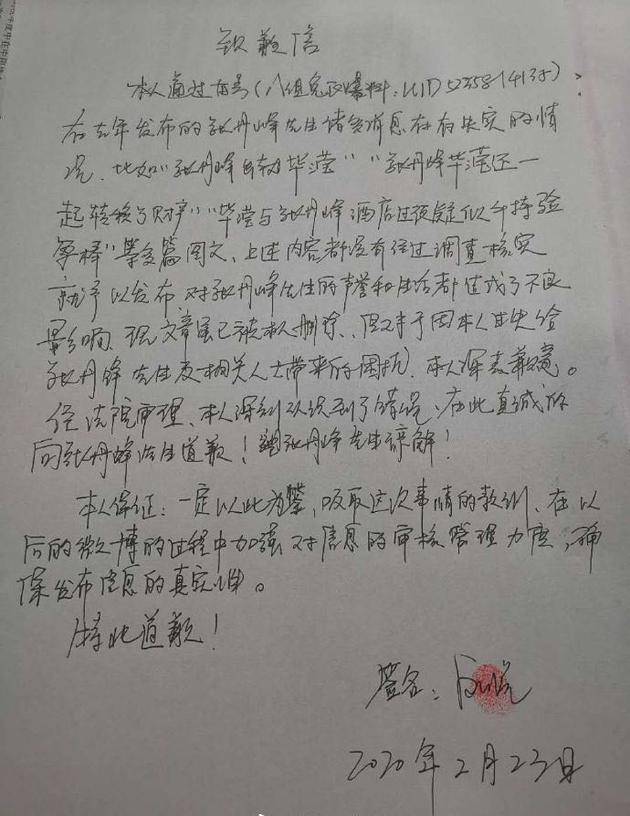 致歉信
本人通过布号(八组兔区爆料:UID 5235814135)
在去年发布的张丹峰先生诸多消息存有失实的情
况、比如"张丹峰毕滢" "张丹峰毕滢还一
起转移了财产" "毕滢与张丹峰酒店过夜疑似手持验
孕棒"等多篇图文、上述内容都没有经过调查核实
就予以发布、对张丹峰先生的声誉和生活都造成了不良
影响、现文章虽已被本人删除、但对于因本人过失给
张丹峰先生及相关人士带来的困扰、本人深表歉意。
经法院审理、本人深刻认识到了错误、在此真诚的
向张丹峰先生道歉!望张丹峰先生谅解!
本人保证:一定以此为鉴,吸取这次事情的教训、在以
后的微博的过程中加强对信息的审核管理力度,确
保发布信息的真实性。
特此道歉!
签名:
2020年2月23日